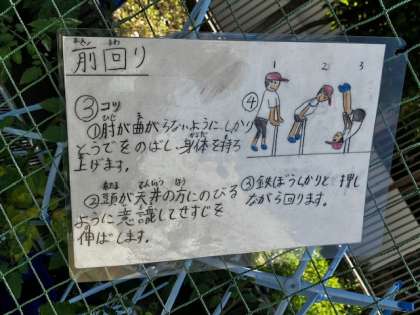 前回り
③コツ
①肘が曲がらないように、しっかり
とうでをのばし、身体を持ち
上げます。
②頭が天井の方にのびる
ように意識してせすじを
伸ばします。
④
1 2 3
③鉄ぼうしかりと押し
ながら回ります。